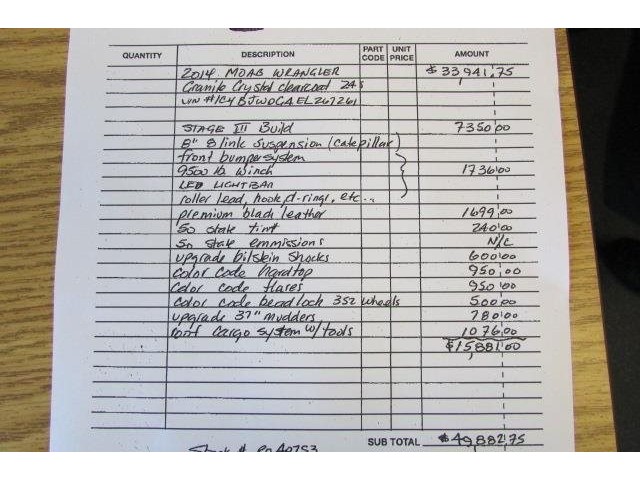 QUANTITY DESCRIPTION PART CODE UNIT PRICE AMOUNT
2014 MOAB WRANGLER $33,941.75
Granite Crystal clearcoat
VIN #1C4BJWDG4EL267261
STAGE III Build 7350.00
8" 8 link suspension (catepillar)
front bumper system
9500 lb winch 1736.00
LED LIGHTBAR
roller lead, hook, d-rings, etc...
premium black leather 1699.00
50 state tint 240.00
50 state emmissions N/C
upgrade bilstein shocks 600.00
color code hardtop 950.00
color code flares 950.00
color code beadlock 352 wheels 500.00
upgrade 37" mudders 780.00
roof cargo system w/tools 1076.00
$15,881.00
SUB TOTAL $49,882.75
Stock #